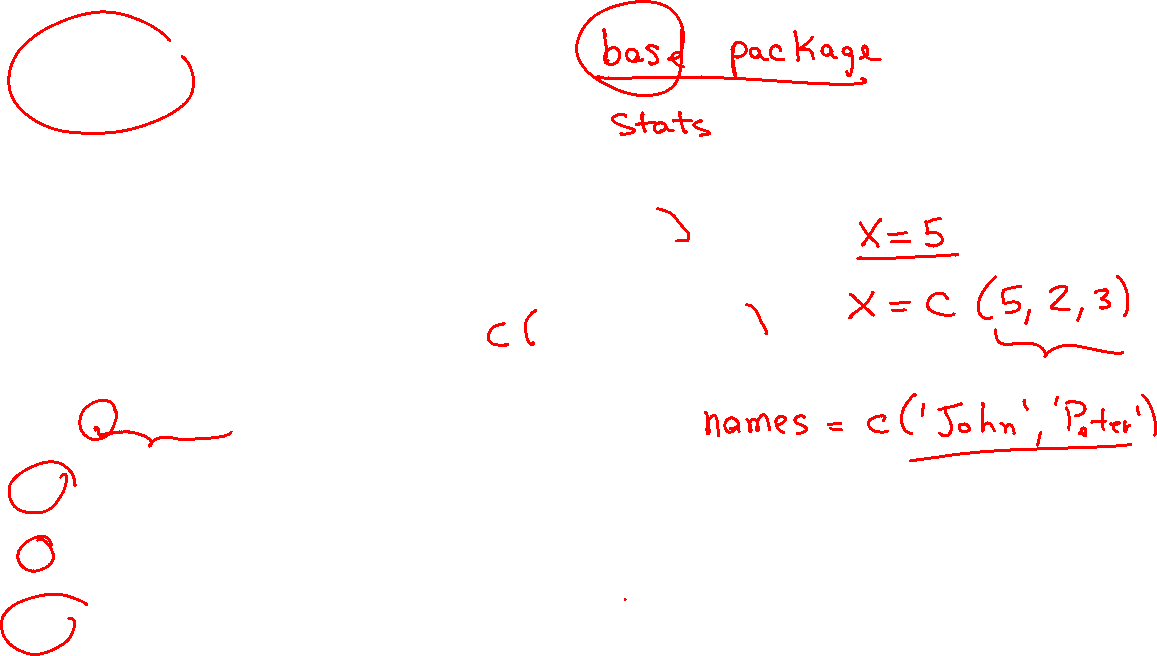 base package
stats
x = 5
x = c (5, 2, 3)
c( )
names = c('John', 'Peter')